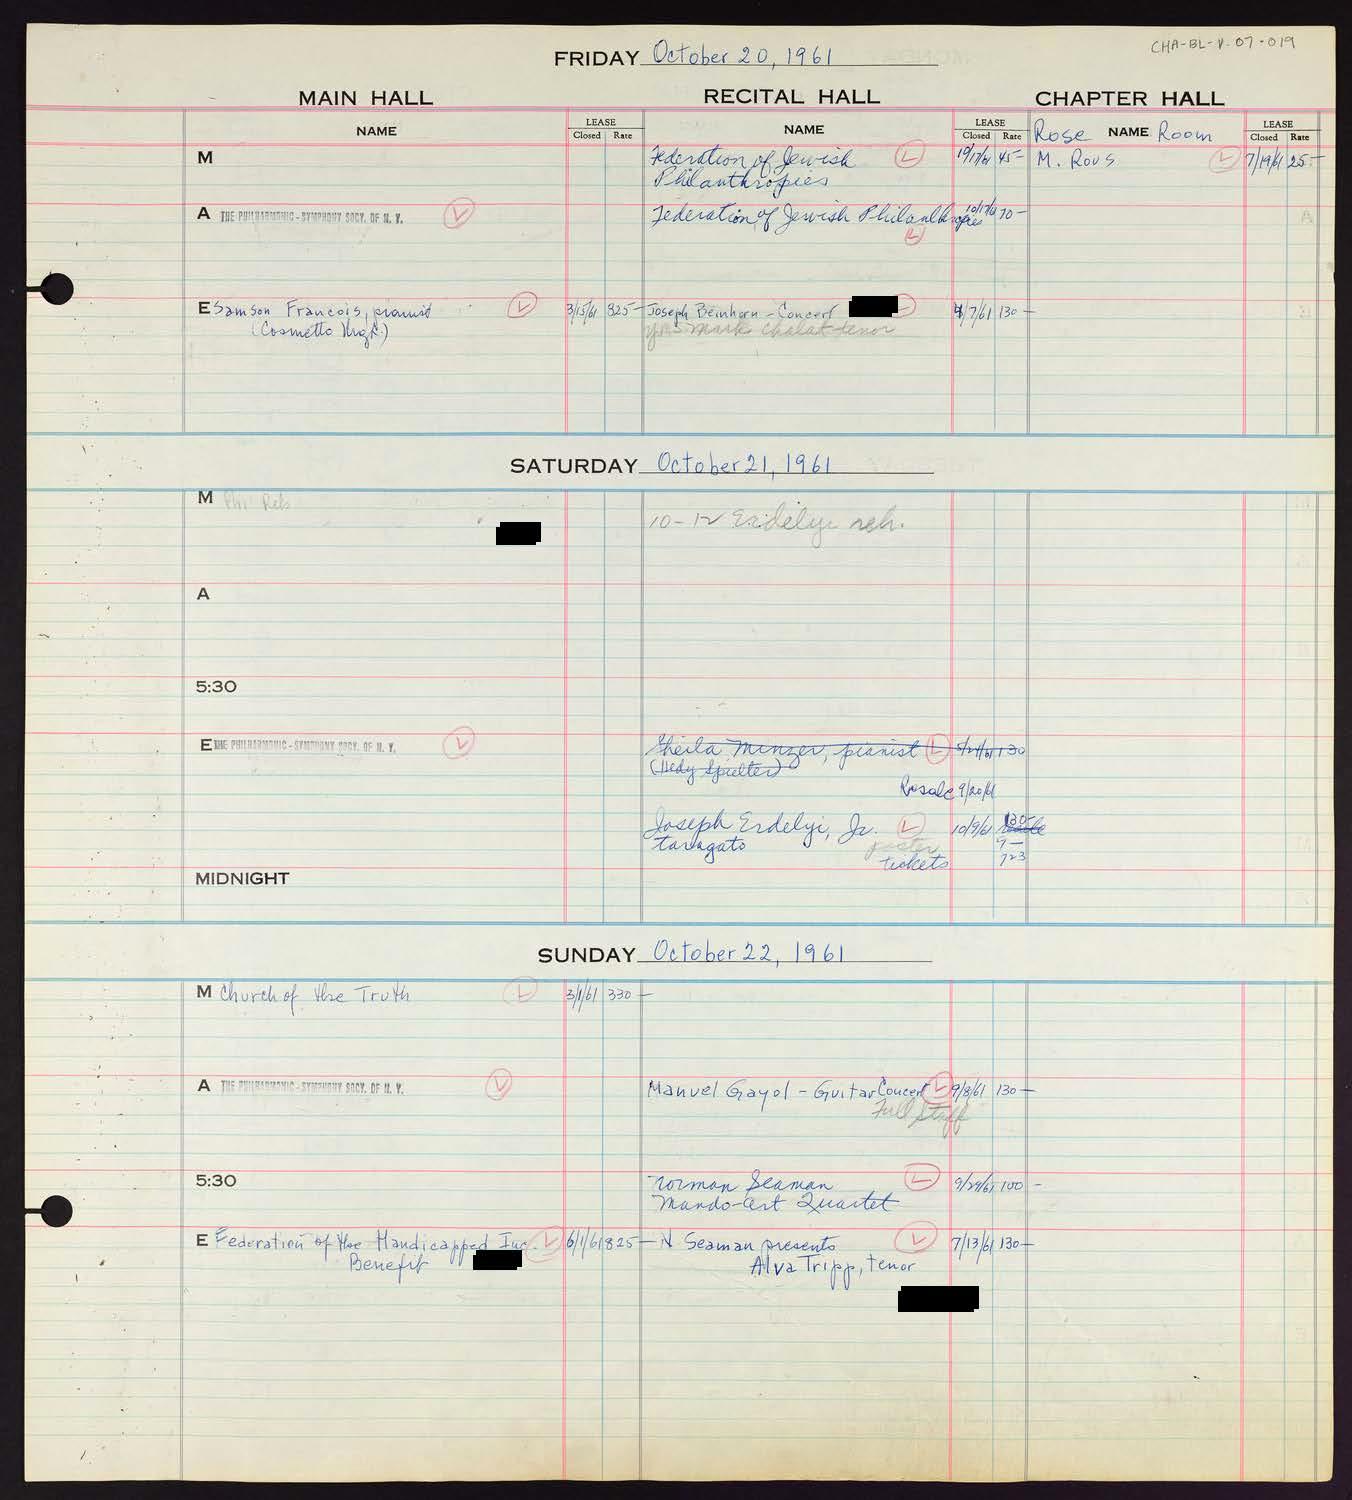 CHA-BL-V.07-019
FRIDAY October 20, 1961
MAIN HALL
RECITAL HALL
CHAPTER HALL
NAME
LEASE
Closed Rate
NAME
LEASE
Closed Rate
Rose NAME Room
LEASE
Closed Rate
M
Federation of Jewish L 45-
Philanthropies
M. Rous L 7/19/61 25-
A THE PHILHARMONIC-SYMPHONY SOCY. OF N. Y. L
Federation of Jewish Philanthropies 10/17/61 70-
L
E Samson Francois, pianist L 3/15/61 825-
(Cosmetto Mgt.)
Joseph Beinhorn - Concert 4/7/61 130-
Mark Chalat tenor
SATURDAY October 21, 1961
M Phil Reh
10-12 Erdelyi reh.
A
5:30
E THE PHILHARMONIC-SYMPHONY SOCY. OF N. Y. L
Sheila Minzer, pianist L 5/24/61 130
(Hedy Spielter)
Resale 9/20/61
Joseph Erdelyi, Jr. L 10/9/61 130-
taragato 7-
poster
tickets 723
MIDNIGHT
SUNDAY October 22, 1961
M Church of the Truth L 3/1/61 330-
A THE PHILHARMONIC-SYMPHONY SOCY. OF N. Y. L
Manuel Gayol - Guitar Concert L 9/8/61 130-
Full Staff
5:30
Norman Seaman L 9/29/61 100-
Mando-Art Quartet
E Federation of the Handicapped Inc. L 6/1/61 825-
Benefit
N Seaman presents L 7/13/61 130-
Alva Tripp, tenor